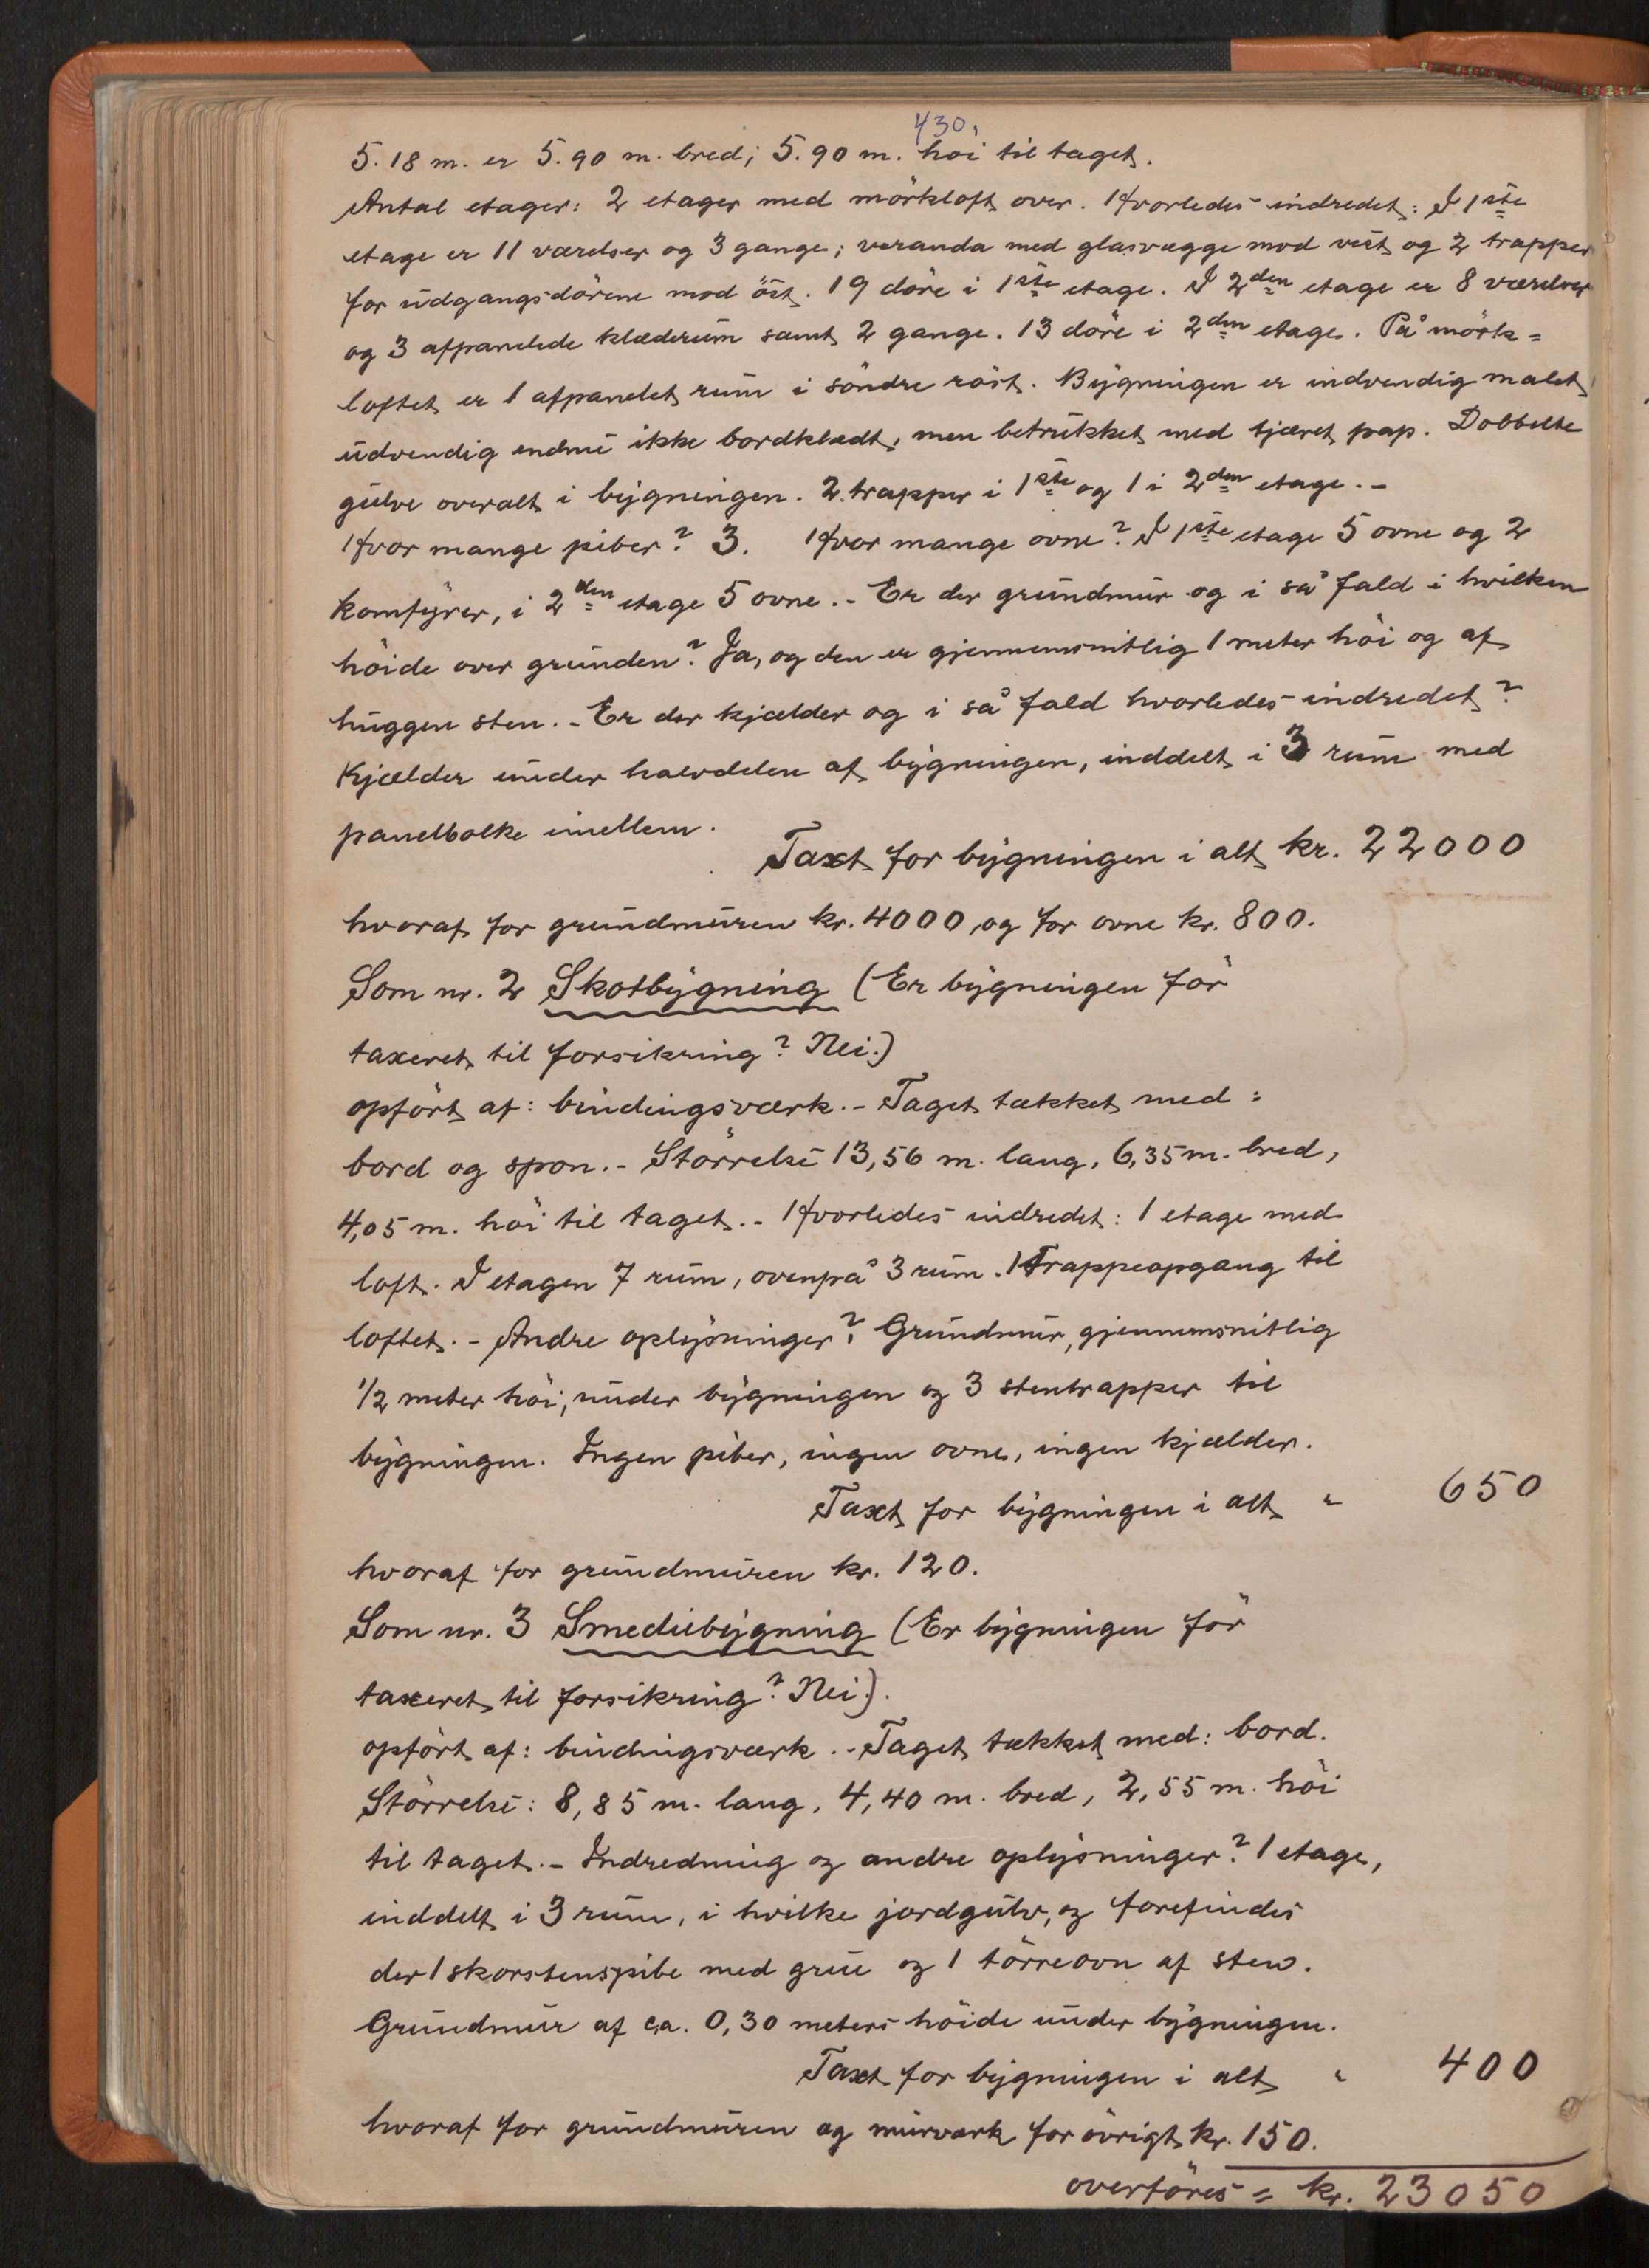 430.
5.18 m. er 5.90 m. bred; 5.90 m. höi til taget.
Antal etager: 2 etager med mörkloft over. Hvorledes indredet: I 1ste
etage er 11 værelser og 3 gange; veranda med glasvægge mod vest og 2 trapper
for udgangsdörene mod öst. 19 döre i 1ste etage. I 2den etage er 8 værelser
og 3 afpanelede klæderum samt 2 gange. 13 döre i 2den etage. På mörk=
loftet er 1 afpanelet rum i söndre röst. Bygningen er indvendig malet,
udvendig endnu ikke bordklædt, men betrukket med tjæret pap. Dobbelte
gulve overalt i bygningen. 2 trapper i 1ste og 1 i 2den etage. -
Hvor mange piber? 3. Hvor mange ovne? I 1ste etage 5 ovne og 2
komfyrer, i 2den etage 5 ovne. - Er der grundmur og i så fald i hvilken
höide over grunden? Ja, og den er gjennemsnitlig 1 meter höi og af
huggen sten. - Er der kjælder og i så fald hvorledes indredet?
Kjælder under halvdelen af bygningen, inddelt i 3 rum med
panelbolke imellem.
Taxt for bygningen i alt kr. 22000
hvoraf for grundmuren kr. 4000, og for ovne kr. 800.
Som nr. 2 Skotbygning (Er bygningen för
taxeret til forsikring? Nei.)
opfört af: bindingsværk. - Taget tækket med:
bord og spon. - Störrelse 13,56 m. lang, 6,35 m. bred,
4,05 m. höi til taget. - Hvorledes indredet: 1 etage med
loft. I etagen 7 rum, ovenpå 3 rum. 1 Trappeopgang til
loftet. - Andre oplysninger? Grundmur, gjennemsnitlig
1/2 meter höi, under bygningen og 3 stentrapper til
bygningen. Ingen piber, ingen ovne, ingen kjælder.
Taxt for bygningen i alt " 650
hvoraf for grundmuren kr. 120.
Som nr. 3 Smediebygning (Er bygningen för
taxeret til forsikring? Nei.).
opfört af: bindingsværk. - Taget tækket med: bord.
Störrelse: 8,85 m. lang, 4,40 m. bred, 2,55 m. höi
til taget. - Indredning og andre oplysninger? 1 etage,
inddelt i 3 rum, i hvilke jordgulv, og forefindes
der 1 skorstenspibe med grue og 1 törreovn af sten.
Grundmur af ca. 0,30 meters höide under bygningen.
Taxt for bygningen i alt " 400
hvoraf for grundmuren og murværk for övrigt kr. 150.
overföres = kr. 23050